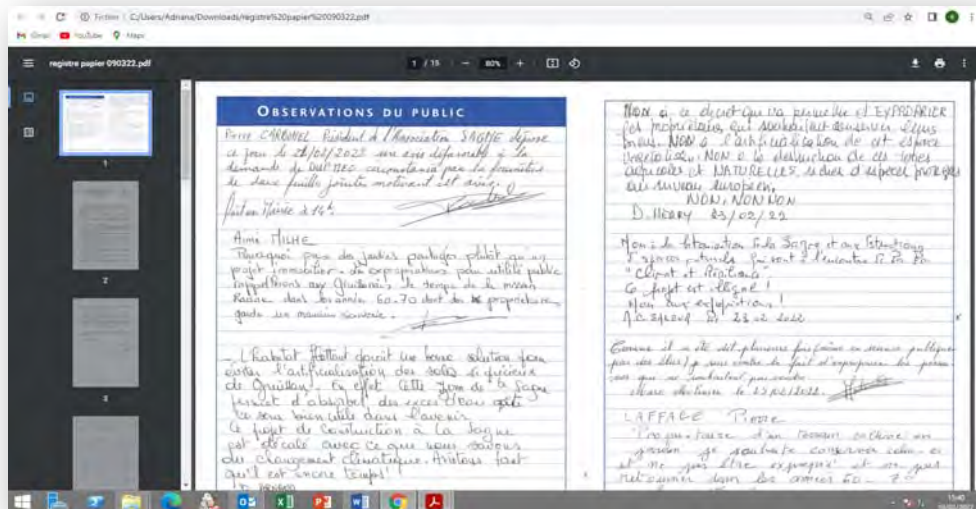 Fichier | C:/Users/Adriana/Downloads/registre%20papier%20090322.pdf
Gmail YouTube Maps
registre papier 090322.pdf
1 / 15 — 80% +
1
2
3
OBSERVATIONS DU PUBLIC
Pierre CARBONEL Président de l'Association SAGNE dépose
ce jour le 21/02/2022 un avis défavorable à la
demande de DUP MEC
de deux feuilles jointes motivant cet avis.
Fait en Mairie à 14h
Aimé MILHE
Pourquoi pas des jardins partagés plutôt qu'un
projet immobilier. Les expropriations pour utilité publique
rappellerons aux Gruissanais le temps de la mission
Racine dans les années 60-70 dont des propriétaires
garde un mauvais souvenir.
- L'habitat flottant serait une bonne solution pour
éviter l'artificialisation des sols si précieux
de Gruissan. En effet cette zone de la Sagne
permet d'absorber des excès d'eau
ce sera bien utile dans l'avenir.
Ce projet de construction à la Sagne
est décalé avec ce que nous savons
du changement climatique. Arêtons tant
qu'il est encore temps!
NON à ce décret qui va permettre d'EXPROPRIER
les propriétaires qui souhaitent conserver leurs
biens. NON à l'artificialisation de cet espace
NON à la destruction de ces zones
agricoles et NATURELLES, riches d'espèces protégées
au niveau européen.
NON, NON NON
D. MERRY 23/02/22
Non à la de la Sagne et aux
d'espaces naturels qui vont à l'encontre de la loi
"Climat et Résilience".
Ce projet est illégal!
Non aux expropriations!
23 02 2022
Comme il a été dit plusieurs fois même en séance publique
par des élus, je suis contre le fait d'exproprier les
qui ne souhaitent pas vendre.
le 23/02/2022.
LAFFAGE Pierre
Propriétaire d'un terrain
je souhaite conserver celui-ci
et ne pas être exproprié et ne pas
retourner dans les années 60-70
15:40